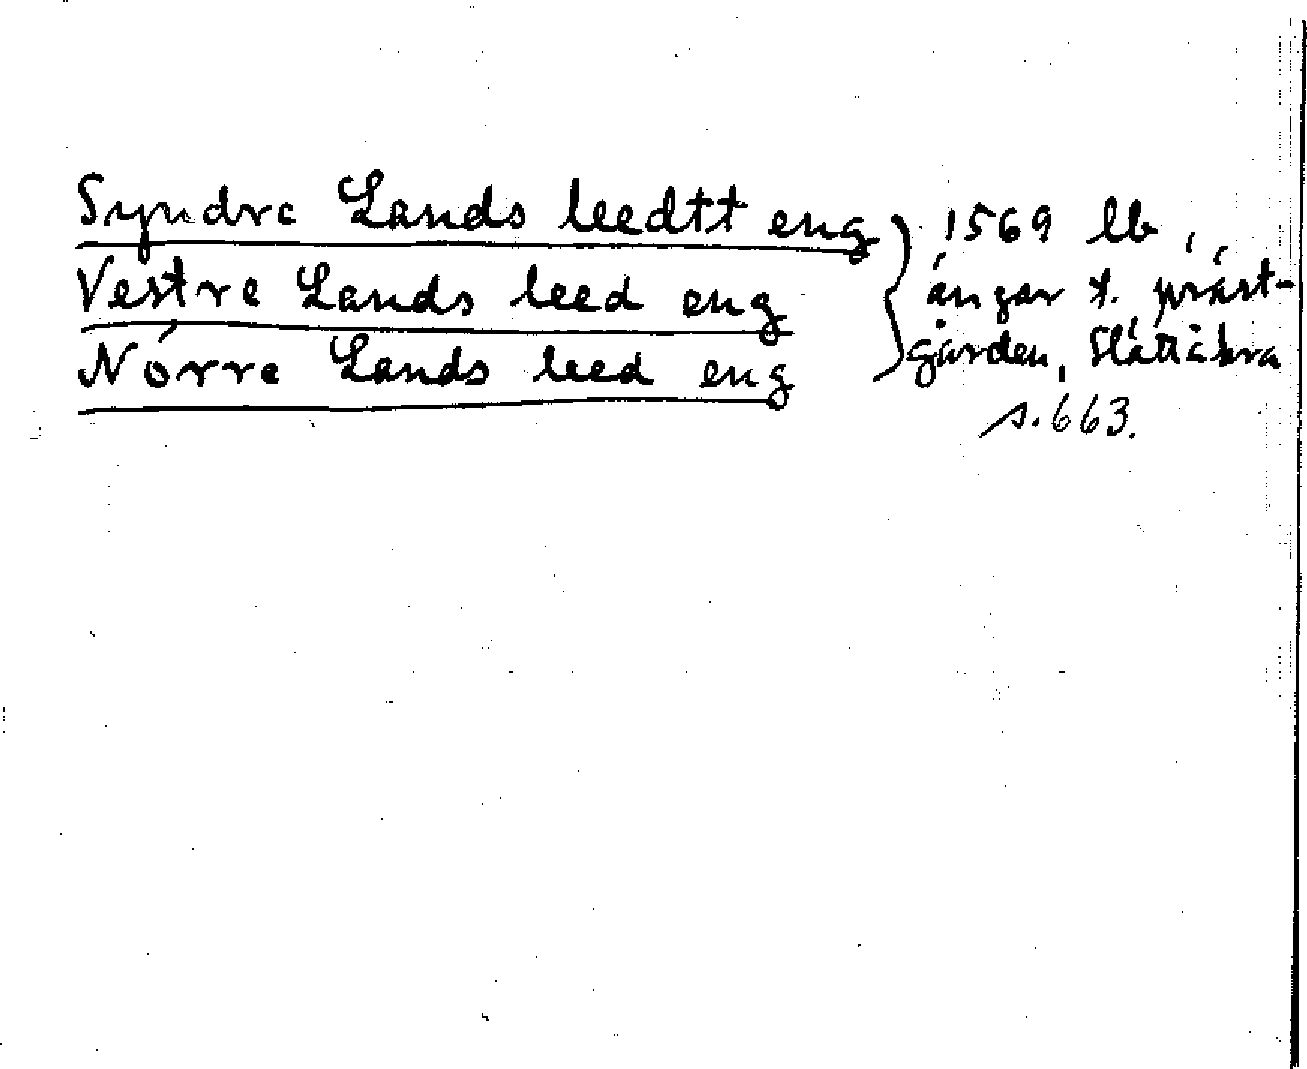 Syndre Lands leedtt eng } 1569 lb,
Vestre Lands leed eng ängar t. präst-
Nörre Lands leed eng gården, Slättåkra
s. 663.